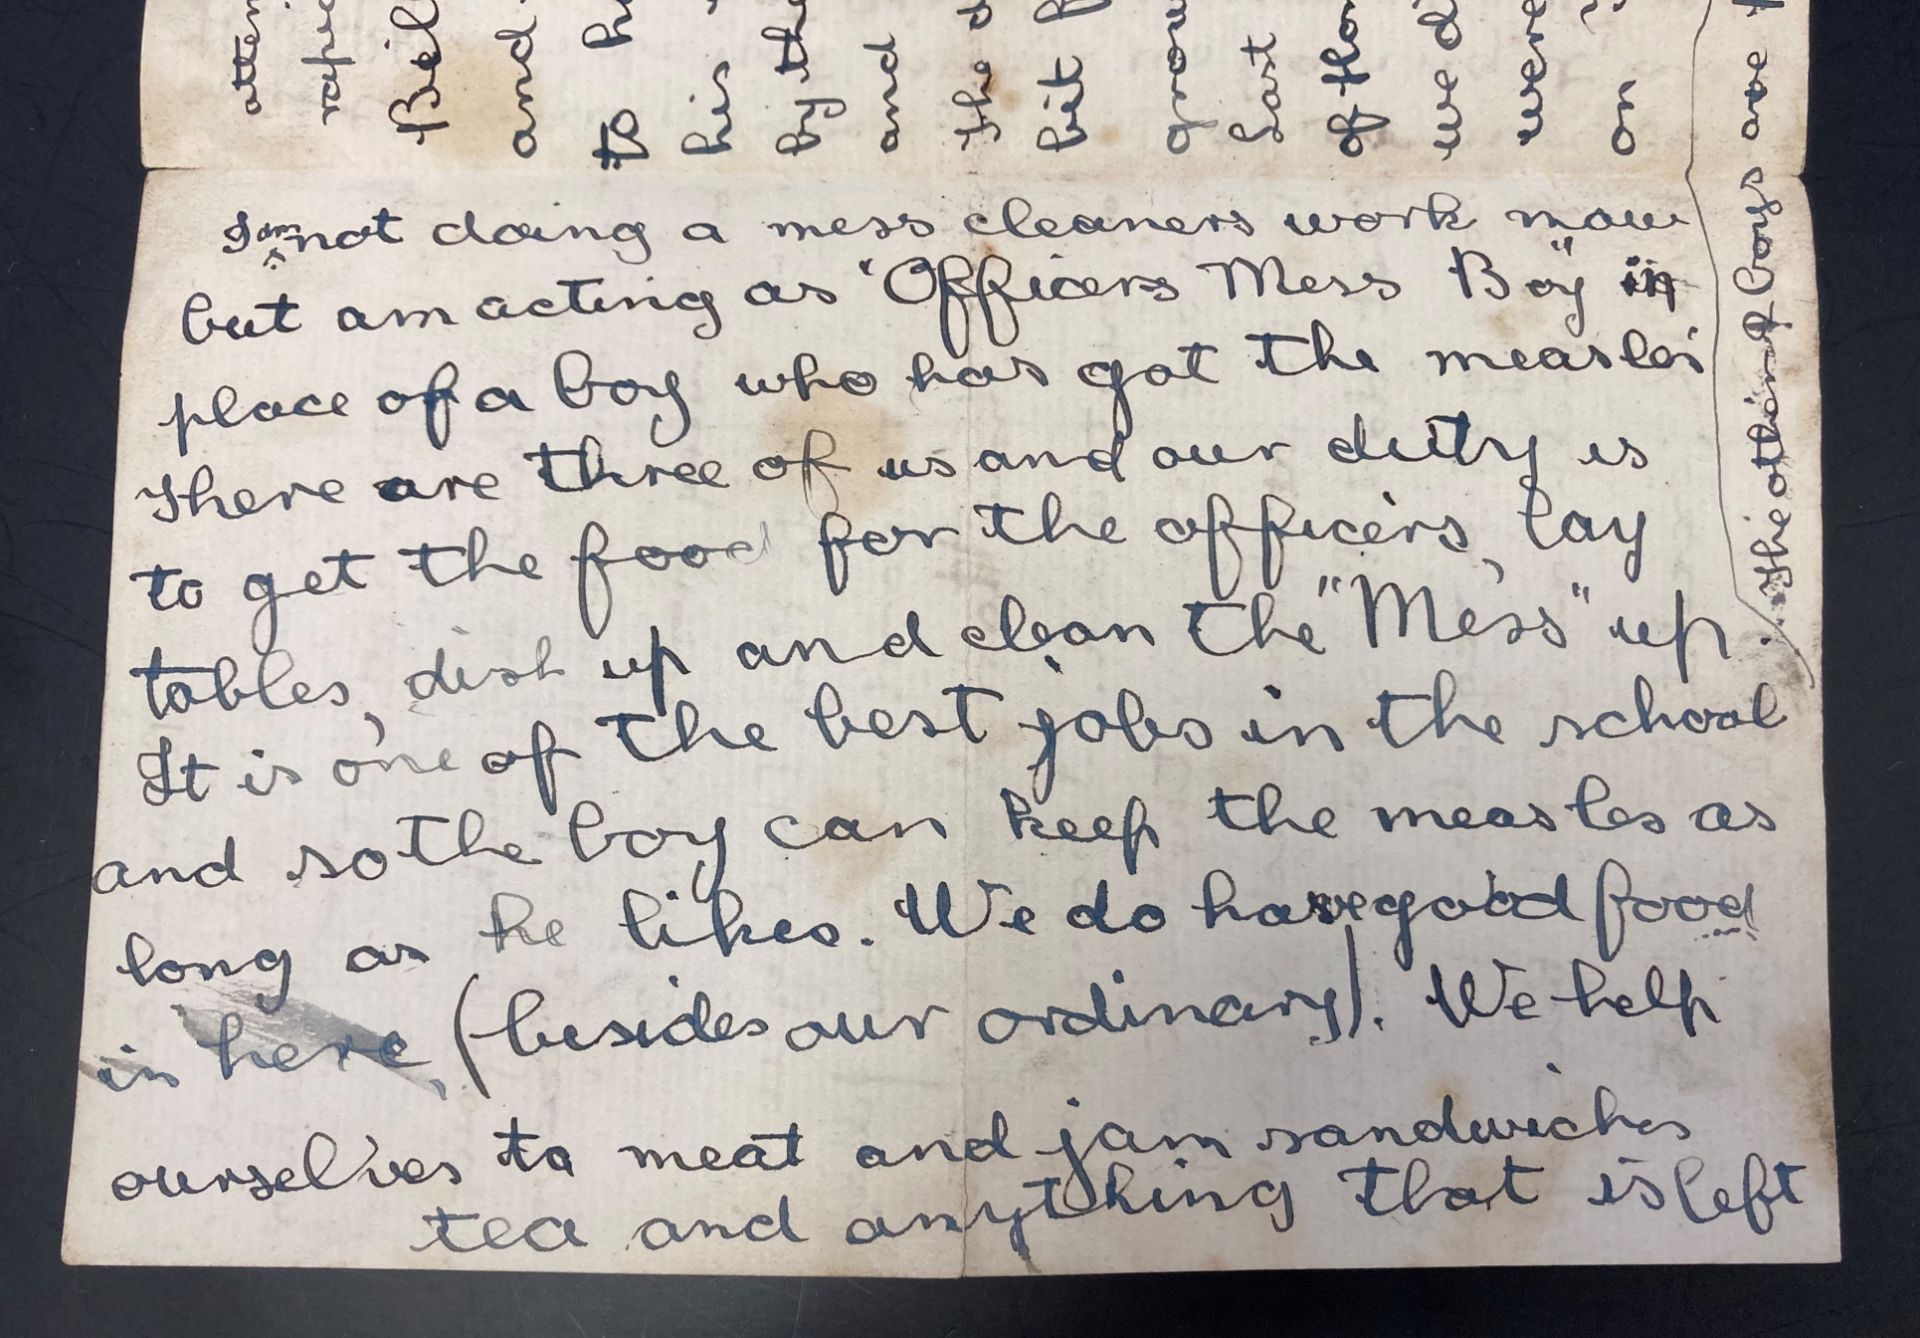 I am not doing a mess cleaners work now
but am acting as "Officers Mess Boy" in
place of a boy who has got the measles
There are three of us and our duty is
to get the food for the officers, lay
tables, dish up and clean the "Mess" up.
It is one of the best jobs in the school
and so the boy can keep the measles as
long as he likes. We do have good food
in here, (besides our ordinary). We help
ourselves to meat and jam sandwiches
tea and anything that is left
The other 2 boys are
atten
rapi
Bil
and
to h
his
by the
and
the d
bit
grou
Last
of tho
we d
were
on